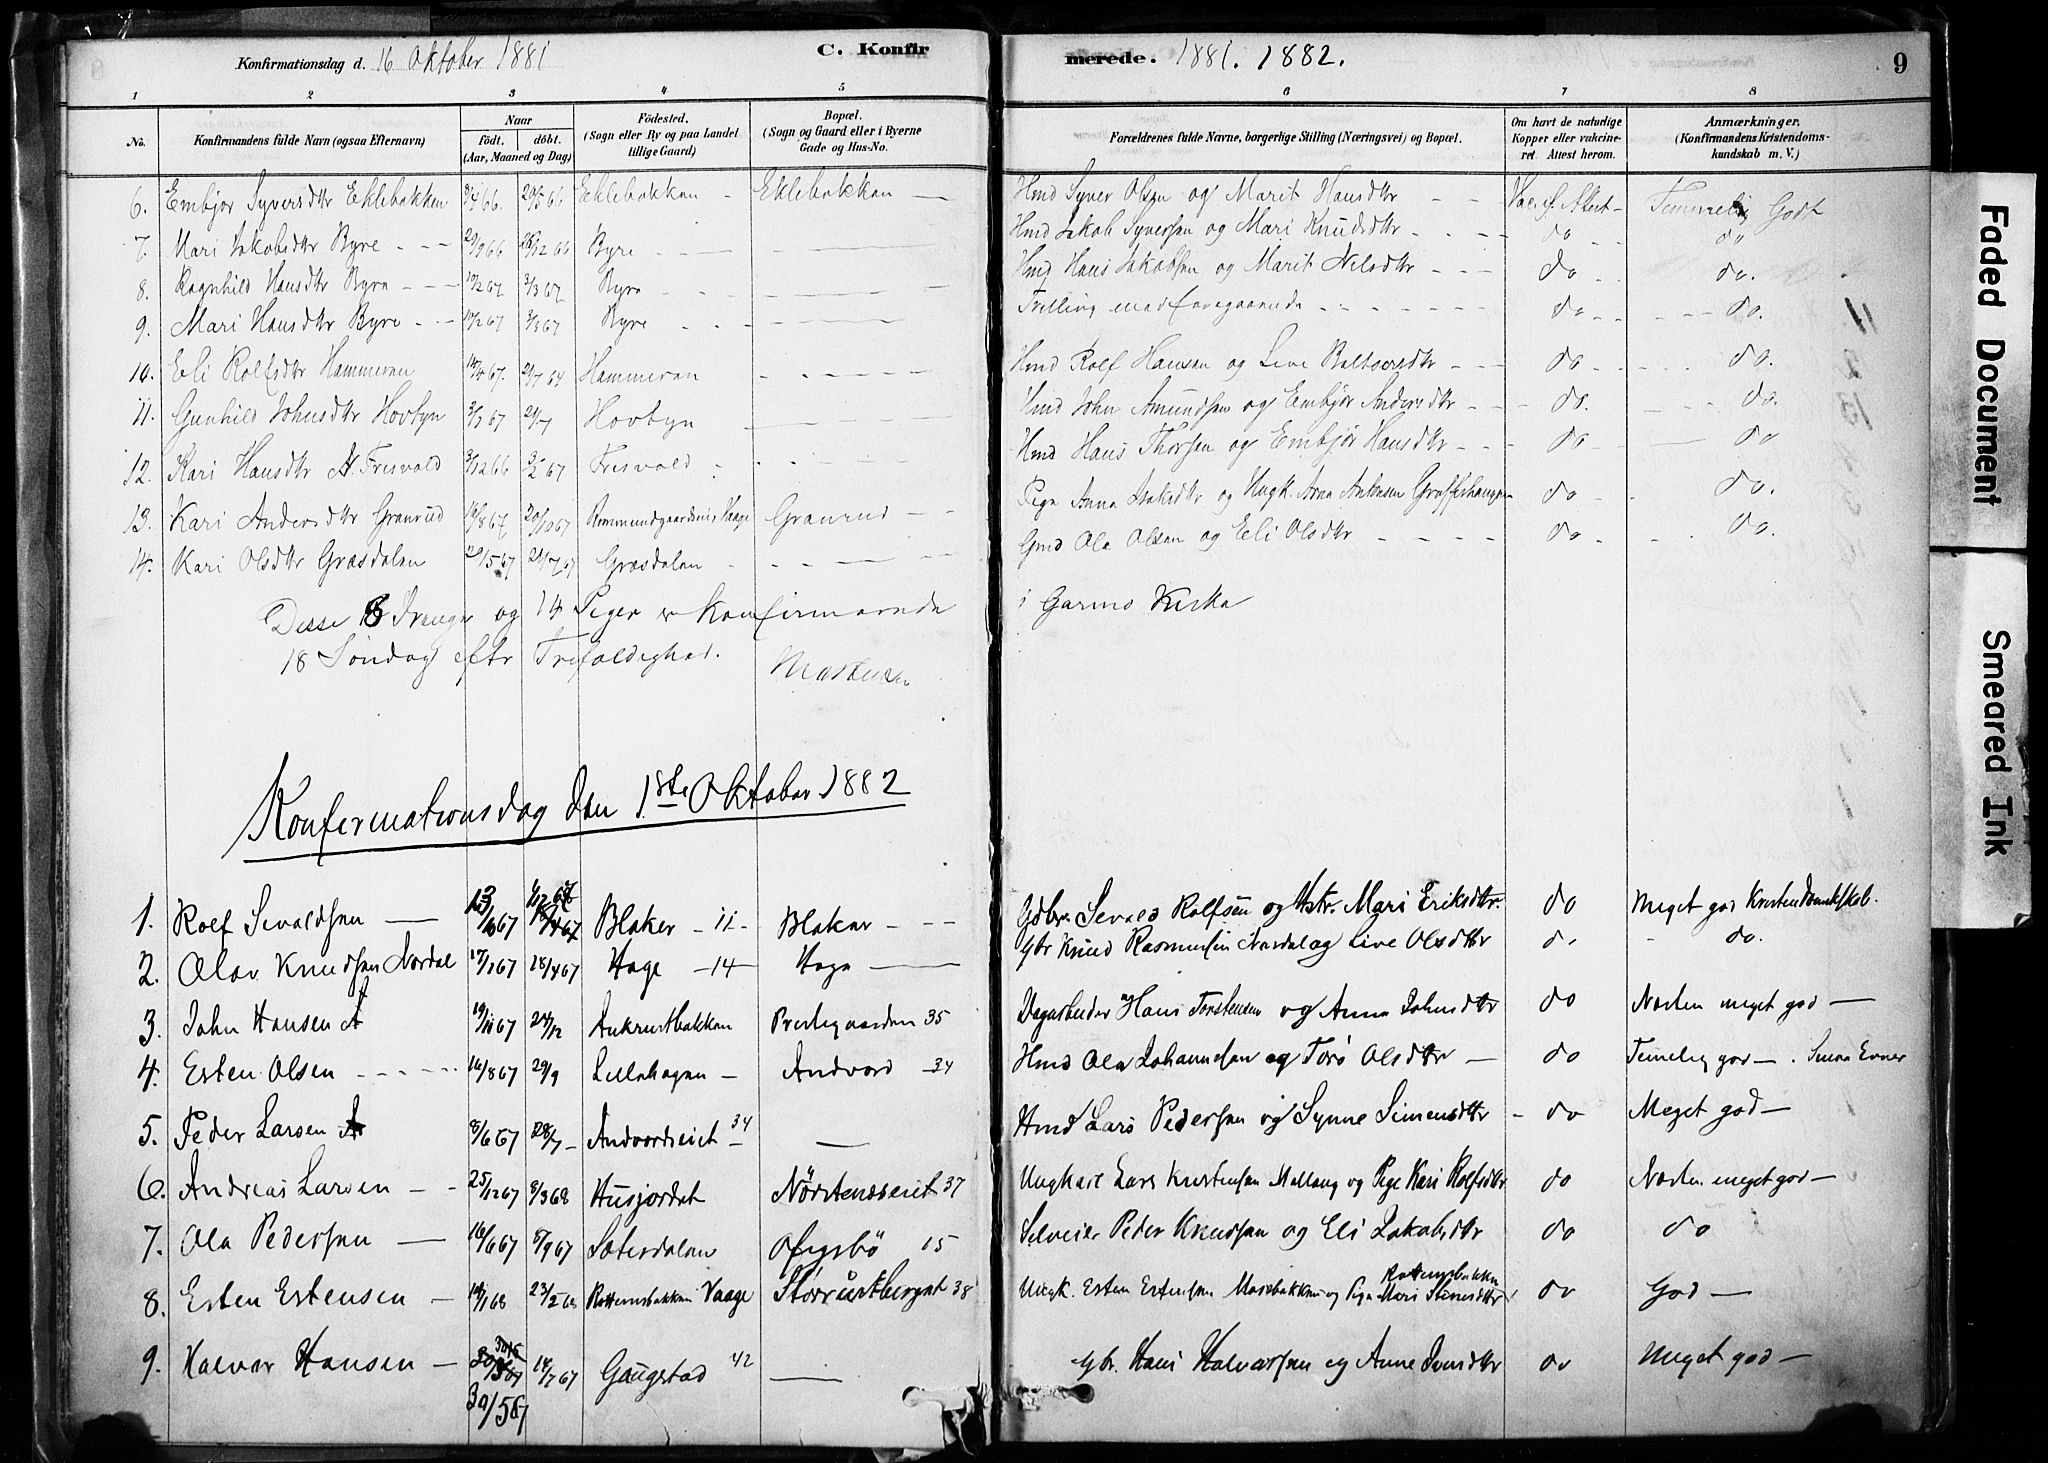 Konfirmationsdag d. 16 Oktober 1881 C. Konfirmerede. 1881. 1882. 9
1 2 3 4 5 6 7 8
No. Konfirmandens fulde Navn (ogsaa Efternavn) Naar født. døbt. (Aar, Maaned og Dag) Fødested. (Sogn eller By og paa Landet tillige Gaard) Bopæl. (Sogn og Gaard eller i Byerne Gade og Hus-No. Forældrenes fulde Navne, borgerlige Stilling (Næringsvei) og Bopæl. Om havt de naturlige Kopper eller vaccineret. Attest herom. Anmærkninger, (Konfirmandens Kristendomskundskab m. V.)
6. Embjør Syversdtr Eklebakken 8/4 66. 20/5 66 Eklebakken - Eklebakken — Hmd Syver Olsen og Marit Hansdtr - - Vac. s. Attest - Temmelig Godt
7. Mari Jakobsdtr Byre - - - 29/9 66 26/12 66 Byre - - - Hmd Jakob Syversen og Mari Knudsdtr - - - - do - - do
8. Ragnhild Hansdtr Byre - - - 19/2 67 3/3 67 Byre - - Hmd Hans Jakobsen og Marit Nilsdtr - - - do - do.
9. Mari Hansdtr Byre - - 19/2 67 3/3 67 Byre - - - Tvilling med foregaaende - - - - - - do - - - - - do.
10. Eli Rolfsdtr Hammeren 14/4 67. Hammeren - - - - - Hmd Rolf Hansen og Live Baltsersdtr - - - do - - - - do.
11. Gunhild Johnsdtr Hovbyn 3/3 67 Hovbyn - - - Hmd John Amundsen og Embjør Andersdtr - - - do. - - - do.
12. Kari Hansdtr N. Frisvold 3/12 66 3/2 67 Frisvold - - - - - Hmd Hans Thorsen og Embjør Hansdtr - - do - — do
13. Kari Andersdtr Granrud 16/8 67 20/10 67 Rommundgaardseiet Vaage Granrud - - Pige Anna Isaksdtr og Ungk. Arne Antonsen Graffershaugen - do - - do.
14. Kari Olsdtr Græsdalen 29/5 67 21/7 67 Græsdalen - - - - - Gmd Ole Olsen og Eli Olsdtr - - - - do - - . do.
Desse 8 Drenger og 14 Piger er Konfirmerede i Garmo Kirke
18 Søndag eftr Trefoldighed.
Konfirmationsdag den 1ste Oktober 1882
1. Rolf Sevaldsen — Blaker - 11 - Blaker - - - Gdbr. Sevald Rolfsen og Hstr. Mari Eriksdtr. do Meget god Kristendomskskab.
2. Olav Knudsen Nordal 17/1 67 28/4 67 Hage - 14 - Hage — Gbr Knud Rasmussen Nordal og Live Olsdtr do - do.
3. John Hansen 19/11 67 24/12 Aukrustbakken Prestegaarden 35 Dagarbeider Hans Torstensen og Anne Johnsdtr do Næsten meget god —
4. Esten Olsen - - - - - 16/8 67 29/9 Lillehagen - Andvord - 34 Hmd Ola Johannesen og Torø Olsdtr — do Temelig god - . Smaa Evner
5. Peder Larsen 8/6 67 28/7 - Andvordseiet 34 — Hmd Lars Pedersen og Synne Simensdtr - do Meget god —
6. Andreas Larsen - - 25/12 67 8/3 68 Husjordet Nørstenseseiet 37 Ungkarl Lars Kristensen Mellang og Pige Kari Rolfsdtr do Næsten meget god —
7. Ola Pedersen — 16/6 67 8/9 67 Sæterdalen Ofigsbø 15 Selveier Peder Knudsen og Eli Jakobsdtr do do
8. Esten Estensen — 14/1 68 23/2 68 Rottemsbakken Vaage Storrustberget 38 Ungk. Esten Estensen Mosebakken og Pige Mari Stenersdtr Rottemsbakken do God —
9. Halvor Hansen — 30/5 67 14/7 67 Gaugstad 42 — Gbr. Hans Halvorsen og Anne Iversdtr do Meget god —
Faded Document
Smeared Ink